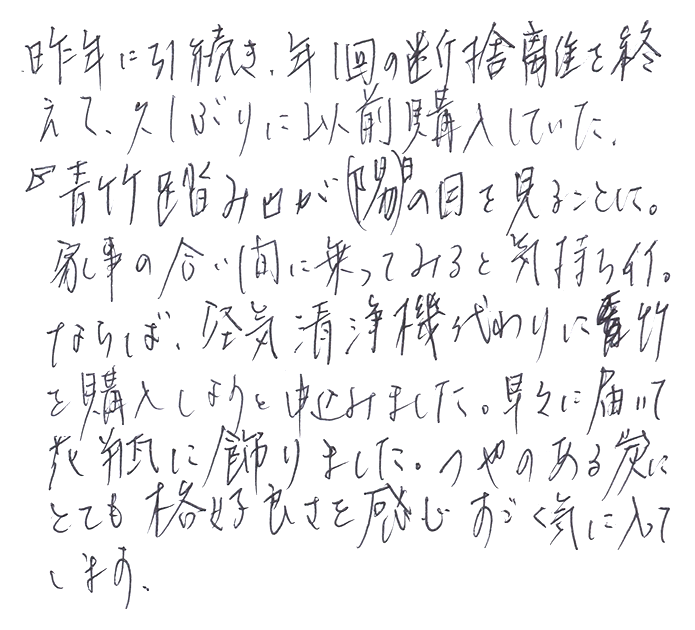 昨年に引続き、年1回の断捨離を終
えて、久しぶりに以前購入していた、
☞青竹踏みセが(陽)の目を見ることに。
家事の合い間に乗ってみると気持ちイイ。
ならば、空気清浄機代わりに青竹
を購入しようと申込みました。早々に届いて
花瓶に飾りました。つやのある炭に
とても格好良さを感じすごく気に入って
います。